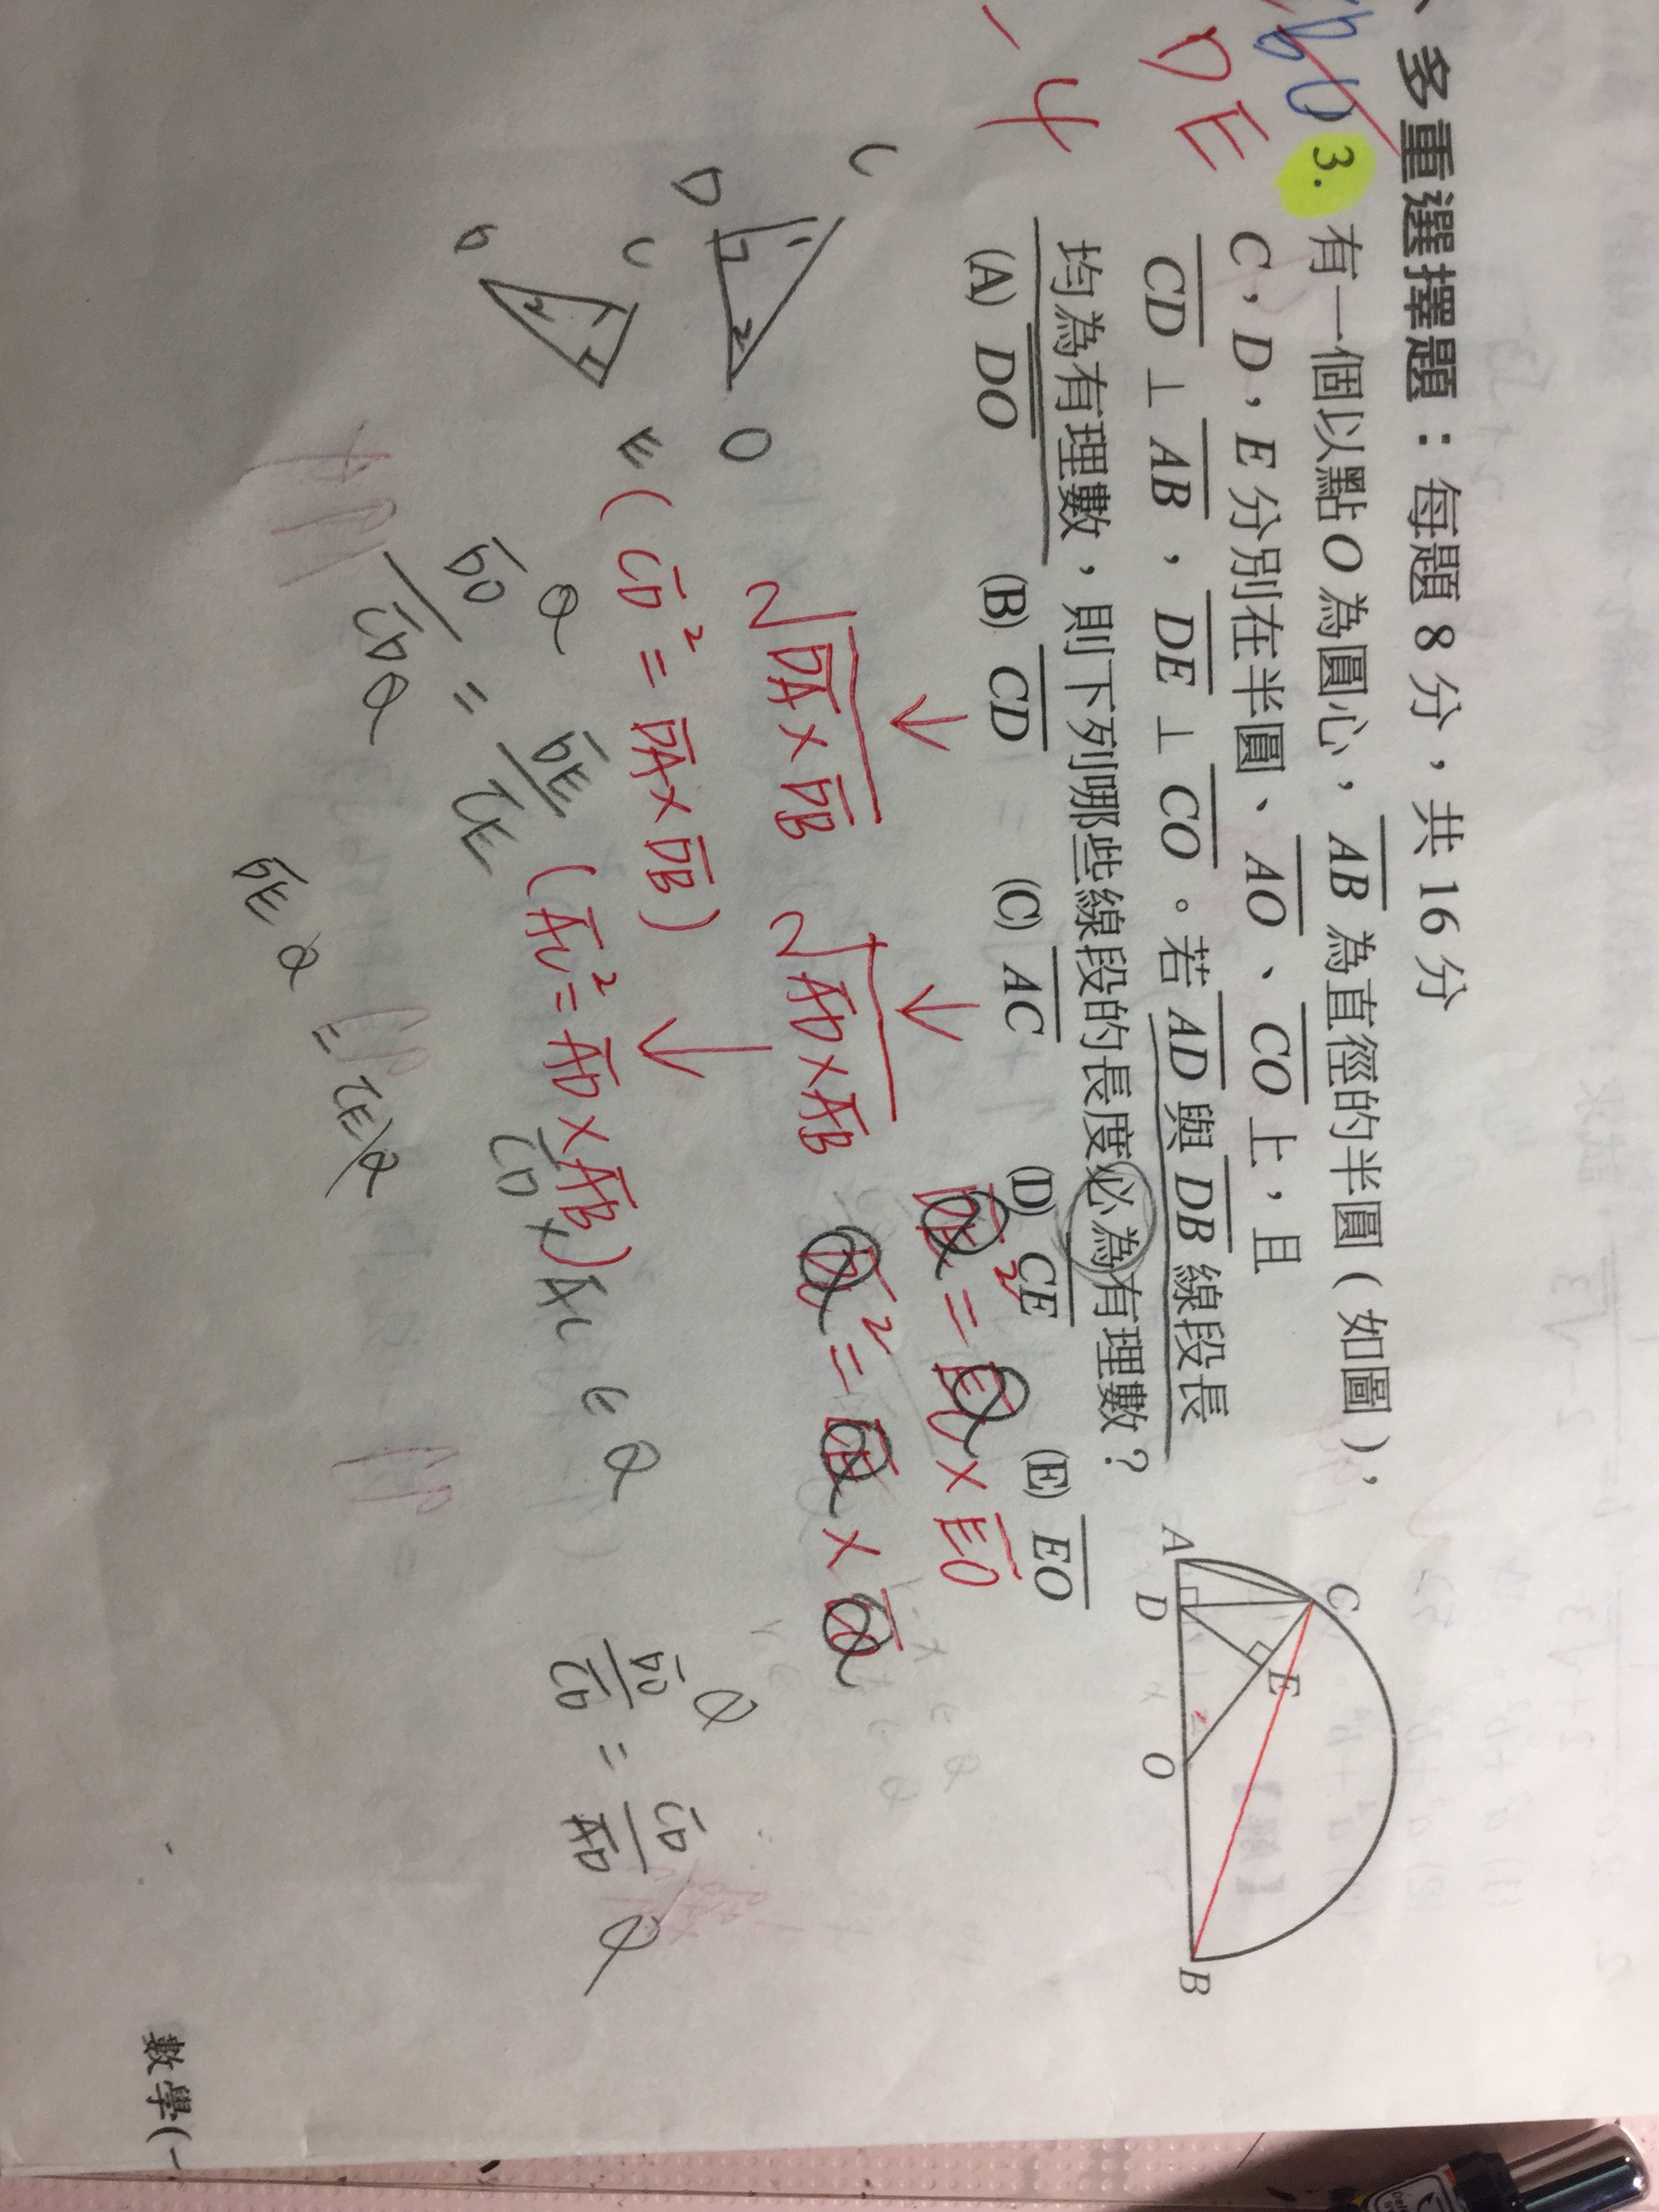 、多重選擇題：每題 8 分，共 16 分
DE
-4
3. 有一個以點 O 為圓心，AB 為直徑的半圓（如圖），
C，D，E 分別在半圓、AO、CO 上，且
CD ⊥ AB，DE ⊥ CO。若 AD 與 DB 線段長
均為有理數，則下列哪些線段的長度必為有理數？
(A) DO (B) CD (C) AC (D) CE (E) EO
A D O B C E
√DA×DB √AD×AB
(CD² = DA×DB)
(AC² = AD×AB)
× EO
C D O
D C E
DO Q / CD Q = DE / CE
CD × AC ∈ Q
DE Q = CE Q
Q DO / CD = CD / AD Q
數學(一